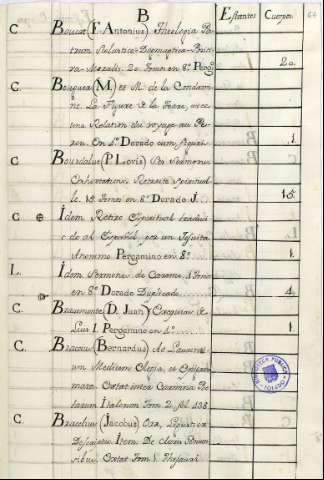 B
Estantes Cuerpos
64
C. Boucat (F. Antonius) Theologia Pa-
trum Scholastica-Dogmatica-Positi-
va 2o. Tomos en 8º Perg.
2o.
C. Bouguer (M.) et M. de la Condami-
ne. La Figure de la Terre, avec
une Relation du voyage au Pe-
rou. En 4º Dorado cum figuris
1.
C. Bourdalue (P. Lovis) Sermones
Exhortations Retraite spirituel-
le. 15. Tomos en 8º Dorado J.
15.
C. Idem Retiro Espiritual traduci-
do al Español por un Jesuita
Anonimo Pergamino en 8º
1.
L. Idem Sermones de Caresme 4 Tomos
en 8º Dorado Duplicado
4.
C. Bracamonte (D. Juan) Exequias de
Luis I. Pergamino en 4º
1.
C. Bracius (Bernardus) de
Extat inter Carmina Poe-
tarum Italorum Tom. 2. fol. 438.
C. Bracelius (Jacobus) Ora Ligustica
Descriptio Item De Claris Genuen-
sibus Extat Tom. 1. Thesauri
BIBLIOTECA PUBLICA
TOLEDO